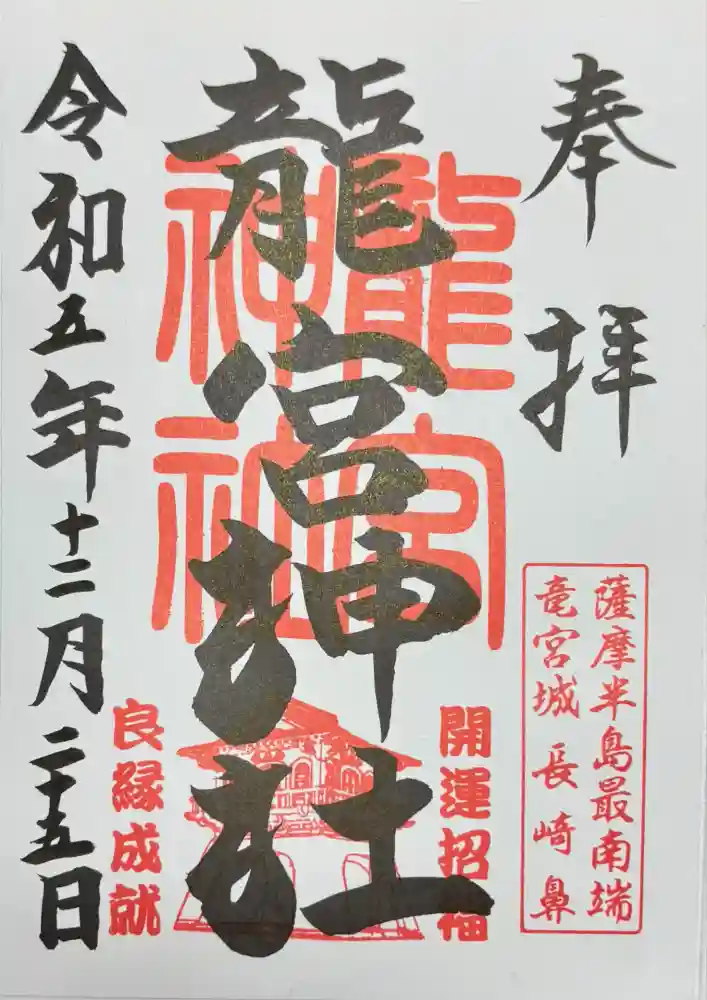 奉拝
薩摩半島最南端
竜宮城 長崎鼻
龍宮神社
龍宮神社
開運招福
良縁成就
令和五年十二月二十五日